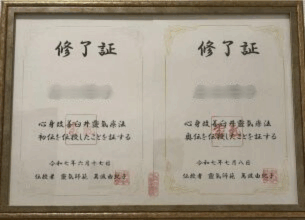 修了証
心身改善臼井靈氣療法
初伝を伝授したことを証する
令和七年六月十七日
伝授者 靈氣師範
修了証
心身改善臼井靈氣療法
奥伝を伝授したことを証する
令和七年七月八日
伝授者 靈氣師範